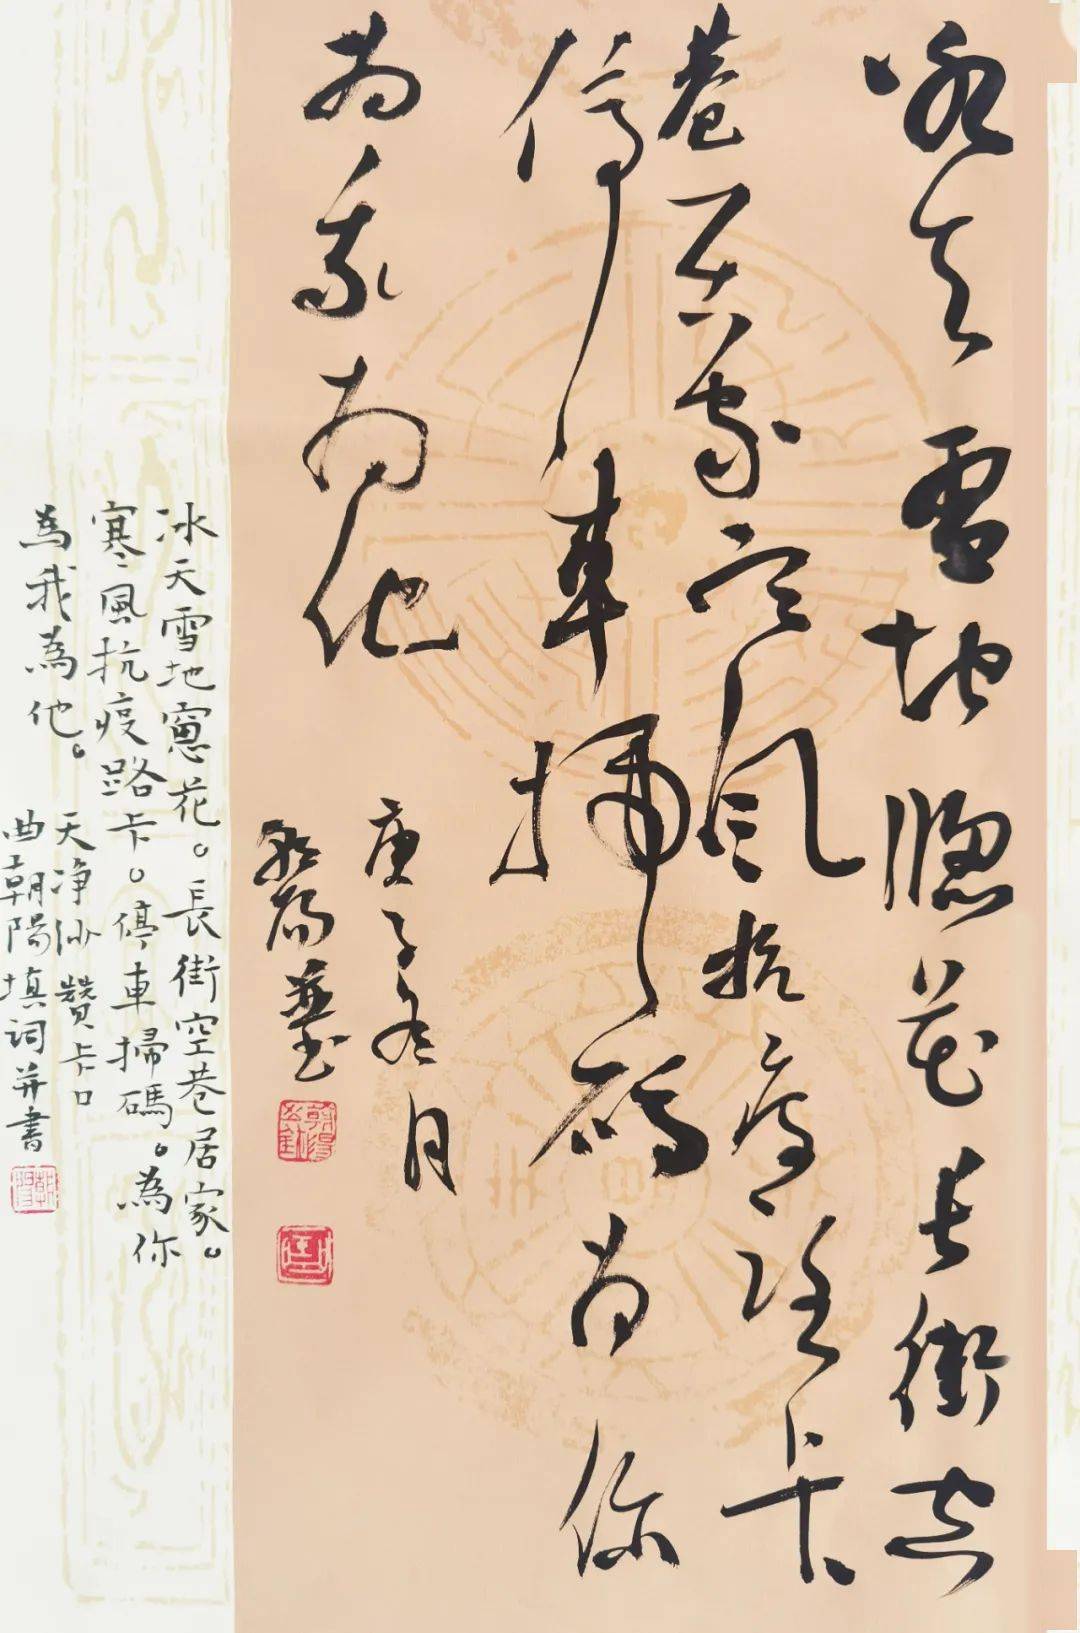 冰天雪地窻花長街空
巷居家寒風抗疫路卡
停車掃碼為你
為我為他
庚子冬月
朝陽並書
冰天雪地窻花。長街空巷居家。
寒風抗疫路卡。停車掃碼。為你
為我為他。
天净沙 贊卡口
曲朝陽填詞并書
朝陽